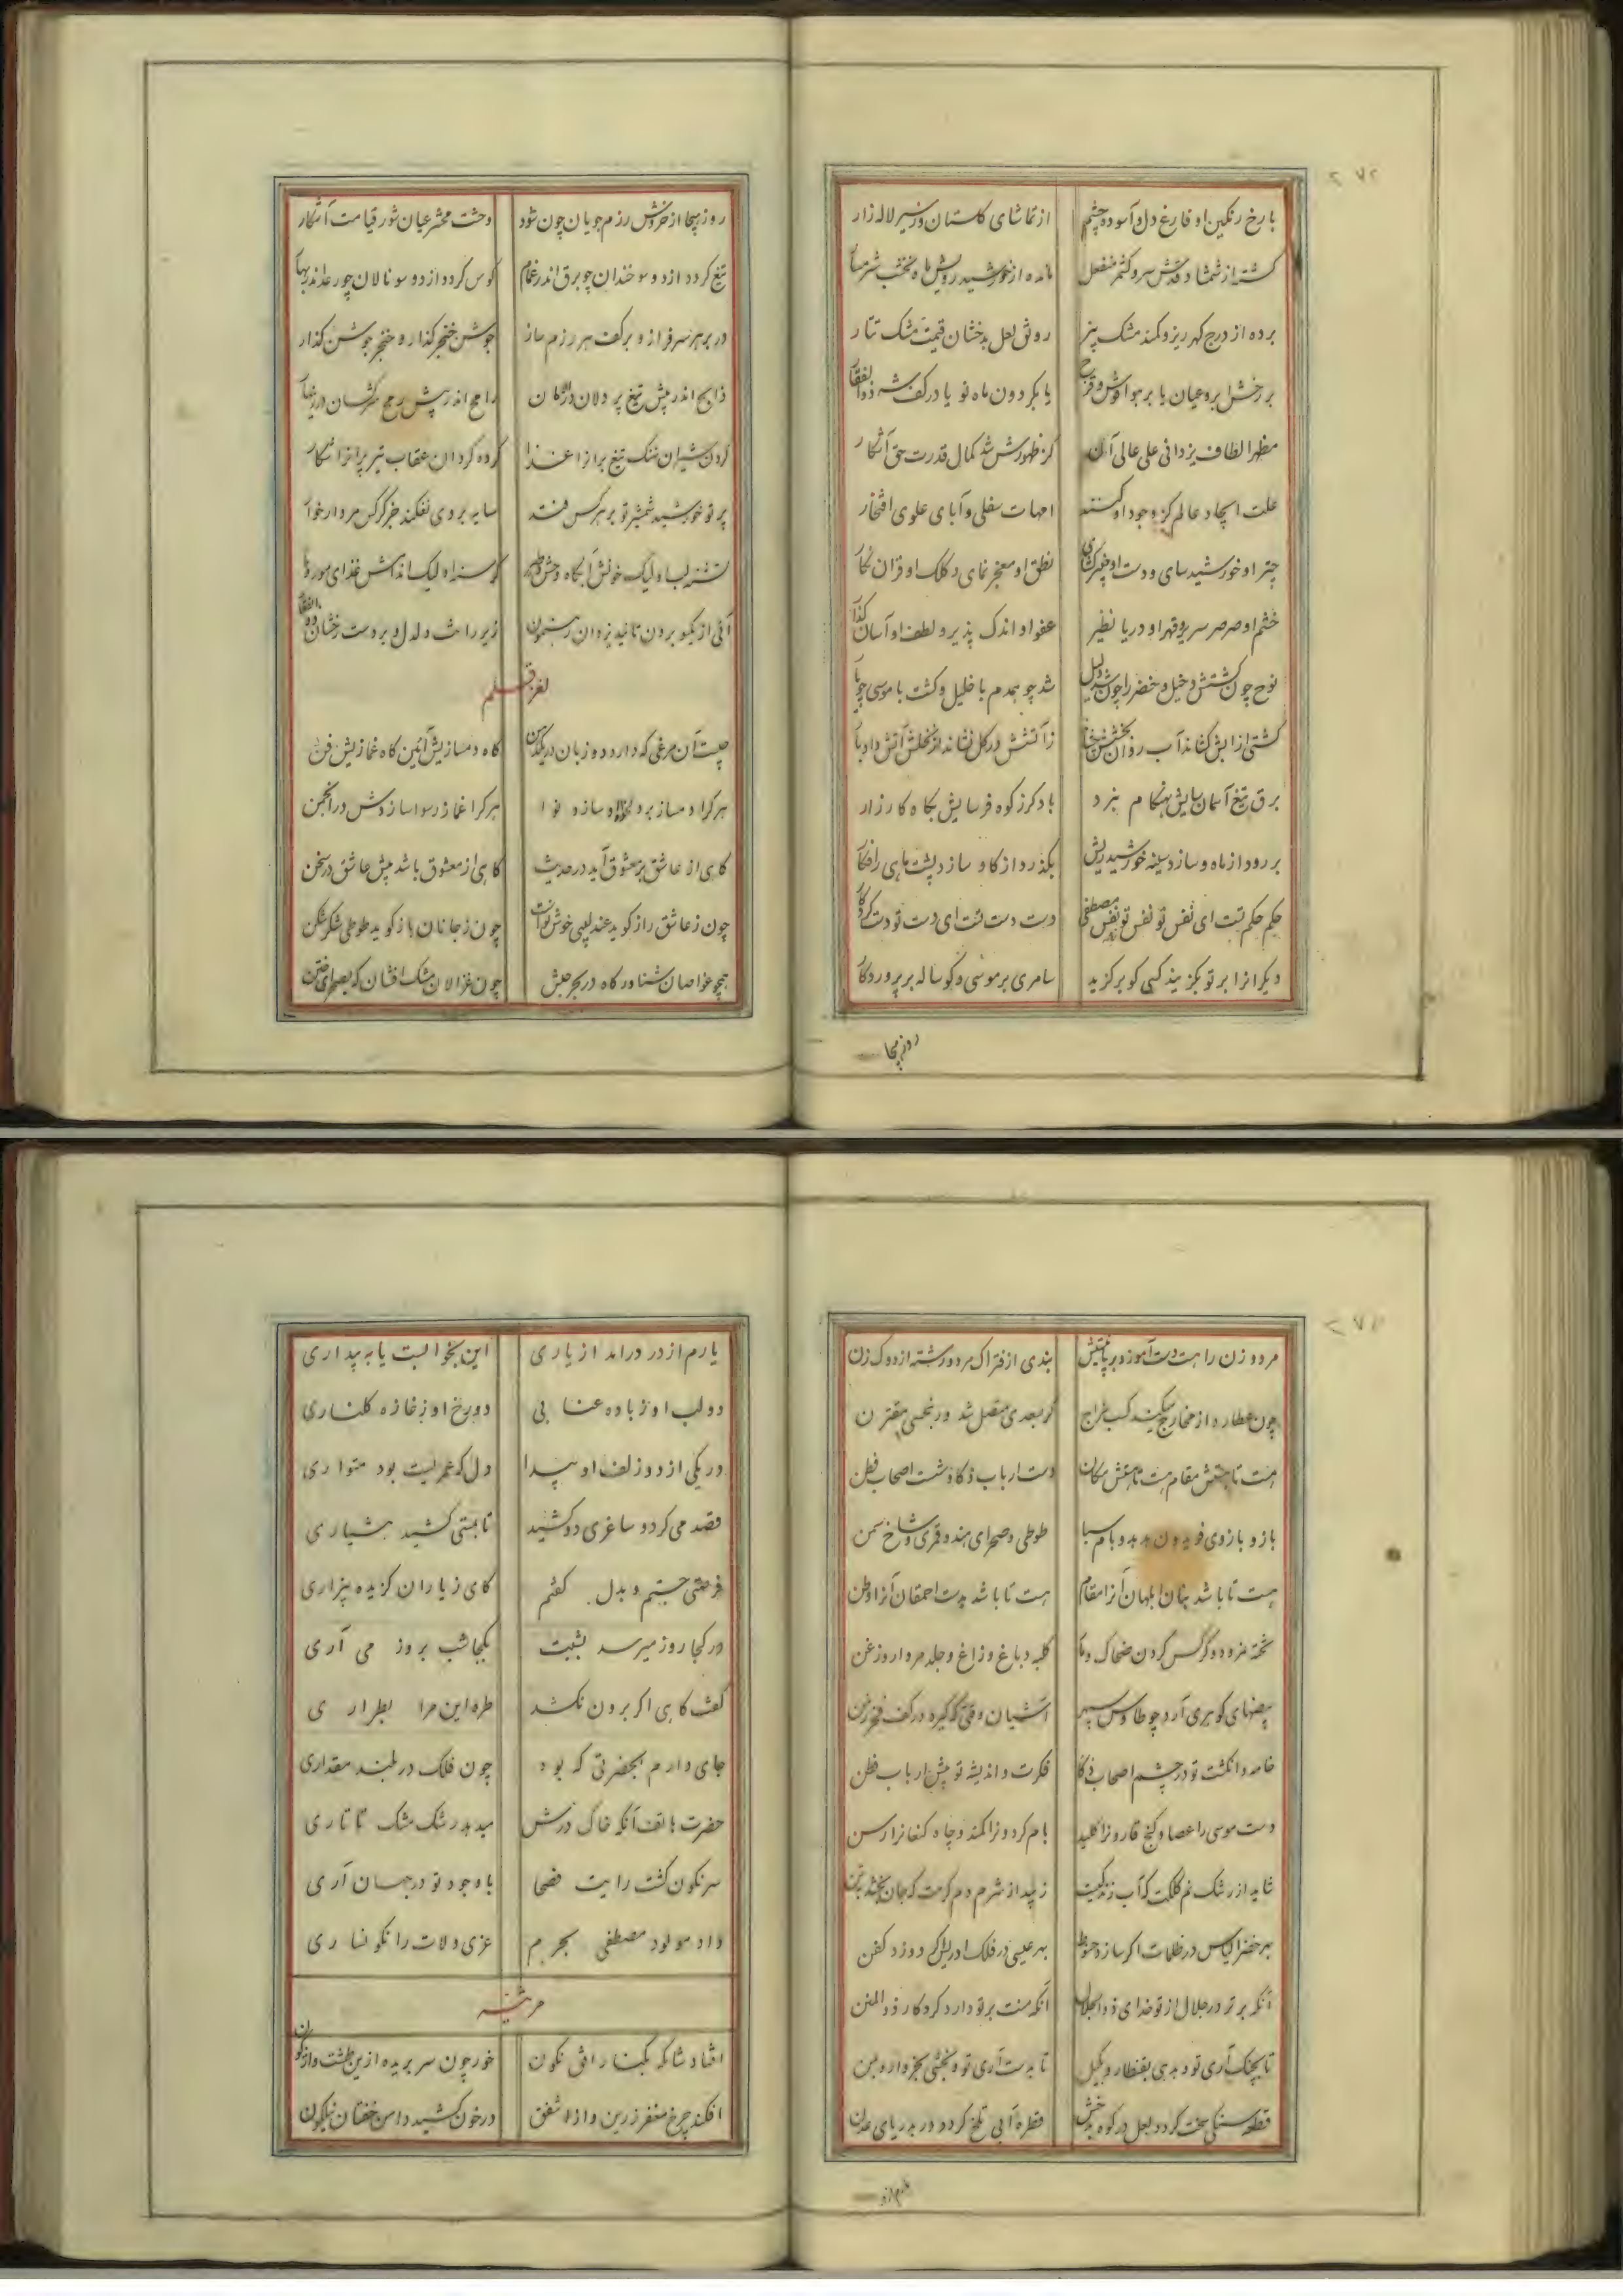 ۲۷۲
با رخ رنکین او فارغ دل و آسوده چشم از تماشای کلستان وز سیر لاله زار
کشته از شمشاد قدش سرو کشمر منفعل مانده از خورشید رویش ماه نخشب شرمسار
برده از درج کهر ریز و کمند مشک بیز رونق لعل بدخشان قیمت مشک تتار
بر رخش ابرو عیان یا بر هوا قوس و قزح یا بکردون ماه نو یا در کف شه ذوالفقار
مظهر الطاف یزدانی علی عالی آنکه کز ظهورش شد کمال قدرت حق آشکار
علت ایجاد عالم کز وجود او کنند امهات سفلی و آبای علوی افتخار
چتر او خورشید سای و دست او خیبر کشای نطق او معجز نمای و کلک او قران نکار
خشم او صرصر سریر و قهر او دریا نظیر عفو او اندک پذیر و لطف او آسان کذار
نوح چون کشتش دخیل و خضر را چون شد دلیل شد چو همدم با خلیل و کشت با موسی چو یار
کشتی از آبش کشاند آب روان بخشش زآتشش در کل نشاند از نخلش آتش داد بار
برق تیغ آسمان سایش بهنکام نبرد باد کرز کوه فرسایش بکاه کارزار
بر رود از ماه و سازد سینه خورشید ریش بکذرد از کاو سازد پشت ماهی را فکار
حکم حکم تست ای نفس تو نفس مصطفی دست دست تست ای دست تو دست کردکار
دیکرانرا بر تو بکزیند کسی کو برکزید سامری بر موسی و کوساله بر پروردکار
روز هیجا
روز هیجا از خروش رزم جویان چون شود وحشت محشر عیان شور قیامت آشکار
تیغ کردد از دو سو خندان چو برق اندر غمام کوس کردد از دو سو نالان چو رعد اندر بهار
در بر هر سرفراز و بر کف هر رزم ساز جوشن خنجر کذار و خنجر جوشن کذار
ذابح اندر پیش تیغ پر دلان رامح اندر پیش رمح سرکشان
کردن شیران خنک تیغ برانرا غذا کرده کردان عقاب تیر پرانرا شکار
پرتو خورشید شمشیر تو بر هر کس فتد سایه بر وی نفکند جز کرکس مردار خوار
تشنه لب او لیک خونش آبکاه وحش و طیر کرسنه او لیک اندامش غذای مور و مار
آئی از یکسو برون تائید یزدان رهنمون زیر رانت دلدل و بر دست رخشان ذوالفقار
لغز قلم
چیست آن مرغی که دارد دو زبان در یکدهن کاه دمسازیش آئین کاه غمازیش فن
هر کرا دمساز بر سازد نوا هر کرا غماز رسوا سازدش در انجمن
کاهی از عاشق بر معشوق آید در حدیث کاهی از معشوق باشد پیش عاشق در سخن
چون ز عاشق راز کوید عندلیبی خوش نواست چون ز جانان باز کوید طوطی شکر شکن
همچو غواصان شناور کاه در بحر حبش چون غزالان مشک افشان که بصحرای ختن
۲۷۱
مرد و زن را هست دست آموز و بر بندی از فتراک مرد و رشته از دوک زن
چون عطارد از مخارج میکند کسب کر بسعدی متصل شد ور بنحسی مقترن
هست تا مقام هست تا مکان دست ارباب ذکا و شست اصحاب فطن
باز و بازوی فریدون هدهد و بام سبا طوطی و صحرای هند و قمری و شاخ سمن
هست تا باشد بنان ابلهان آنرا مقام هست تا باشد بدست احمقان آنرا وطن
تخته نمرود و کرکس کردن ضحاک و مار کلبه دباغ و زاغ و جلد مردار و زغن
بیضهای کوهری آرد چو طاوس سپهر آشیان وقتی که کیرد در کف فخر زمن
خامه و انکشت تو در چشم اصحاب ذکا فکرت و اندیشه تو پیش ارباب فطن
دست موسی را عصا و کنج قارونرا کلید بام کردونرا کمند و چاه کنعانرا رسن
شاید از رشک نم کلکت که آب زندکیست زیبد از شرم دم کرمت که جان بخشد بتن
بهر خضر الیاس در ظلمات اکر سازد حنوط بهر عیسی در فلک ادریس اکر دوزد کفن
آنکه برتر در جلال از تو خدای ذوالجلال آنکه منت بر تو دارد کردکار ذوالمنن
تا بچنک آری تو و بدهی بقنطار و بکیل تا بدست آری تو و بخشی بخروار و بمن
قطعه سنکی سخت کردد لعل در کوه بدخش قطره آبی تلخ کردد در بدریای عدن
یارم از در درآمد از یاری این بخوابست یا به بیداری
دو لب او ز باده عنابی دو رخ او ز غازه کلناری
در یکی از دو زلف او پیدا دل که عمریست بود متواری
قصد می کرد و ساغری دو کشید تا بمستی کشید هشیاری
فرصتی جستم و بدل کفتم کای ز یاران کزیده بیزاری
در کجا روز میرسد بشبت بکجا شب بروز می آری
کفت کاهی اکر برون نکشد طره این مرا بطراری
جای دارم بحضرتی که بود چون فلک در بلند مقداری
حضرت هاتف آنکه خاک درش میدهد رشک مشک تاتاری
سرنکون کشت رایت فصحا با وجود تو در جهان آری
داد مولود مصطفی بحرم عزی و لات را نکونساری
مرثیه
افتاد شامکه بکنار افق نکون خور چون سر بریده ازین طشت واژکون
افکند چرخ مغفر زرین و از شفق در خون کشید دامن خفتان نیلکون